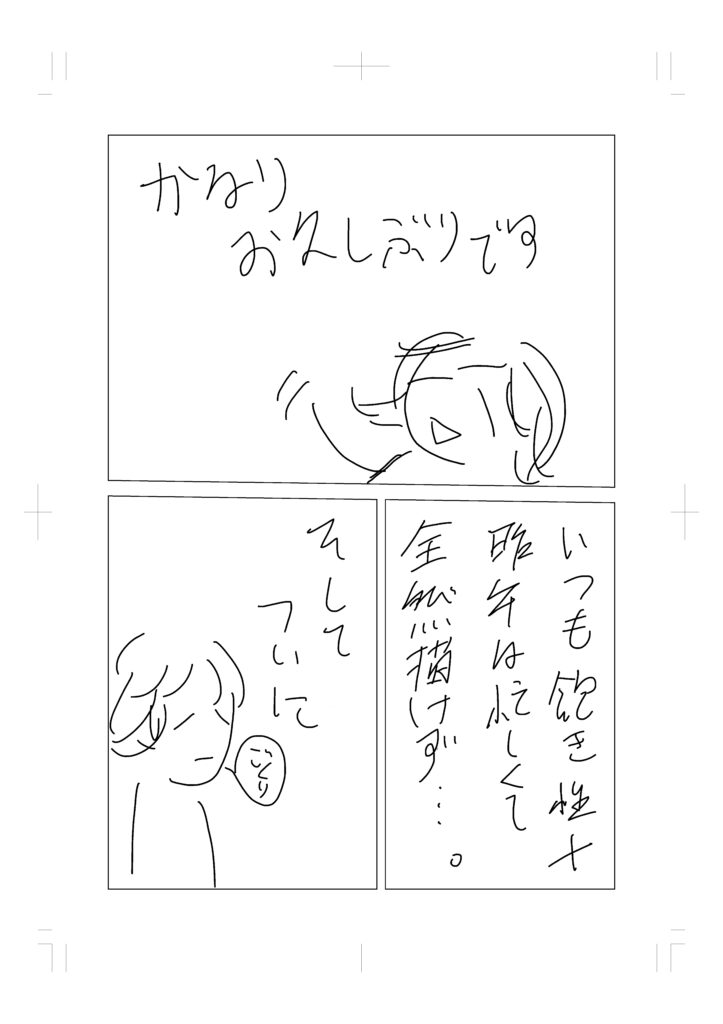 かなり
お久しぶりです
いつも飽き性+
昨年は忙しくて
全然描けず…。
そして
ついに
ごくり